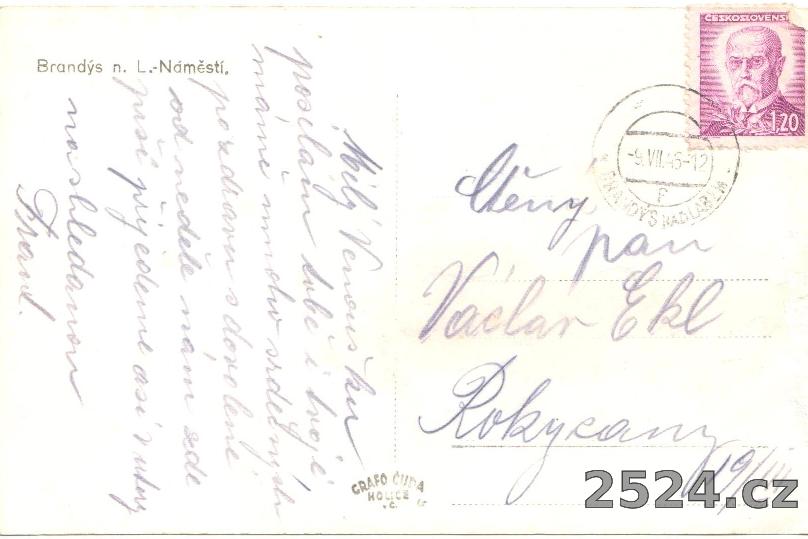 Brandýs n. L.-Náměstí.
Milý Venoušku
posílám tobě i tvojí
mámě mnoho srdečných
pozdravu s dovolené
od neděle nám zde
prší přijedeme asi v úterý
na shledanou
ČESKOSLOVENS
1.20
-9.VII.46-12
F
BRANDÝS NAD LABEM
Ctěný
pan
Václav Ekl
Rokycany
19/III
GRAFO ČUDA
HOLICE
Č.
2524.cz